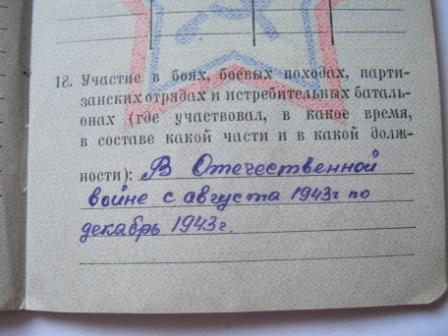 18. Участие в боях, боевых походах, парти-
занских отрядах и истребительных баталь-
онах (где участвовал, в какое время,
в составе какой части и в какой долж-
ности): В Отечественной
войне с августа 1943г по
декабрь 1943г.